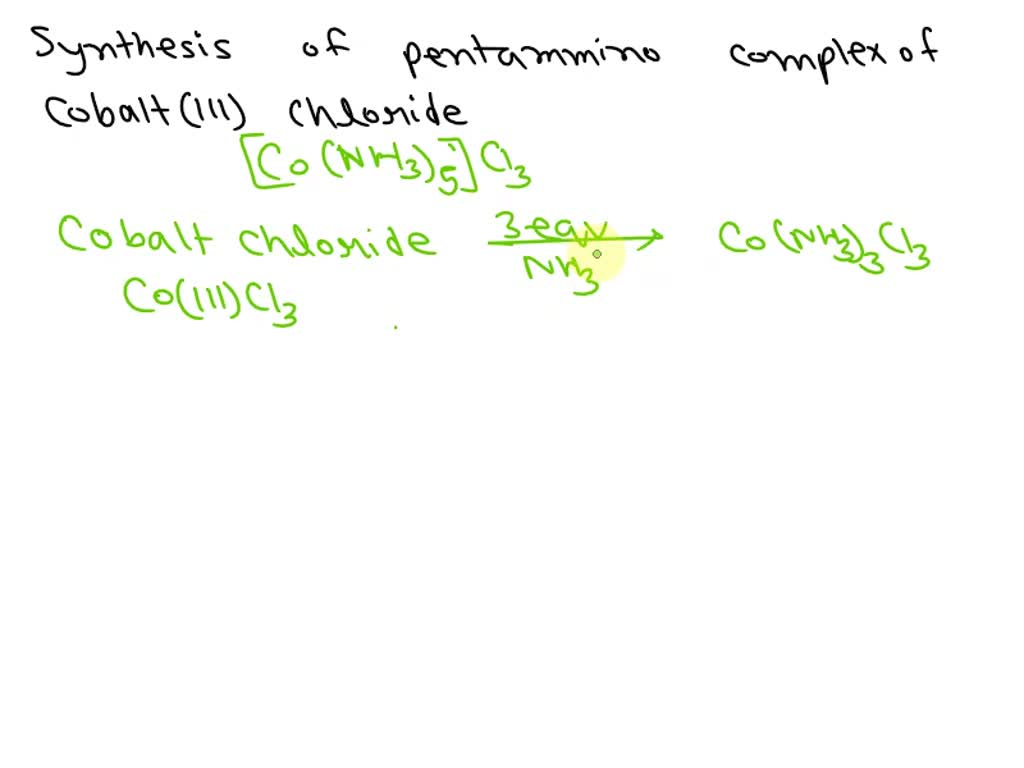 Synthesis of pentammino complex of
Cobalt(III) chloride
[Co(NH3)5]Cl3
Cobalt chloride 3 eqv Co(NH3)3Cl3
NH3
Co(III)Cl3